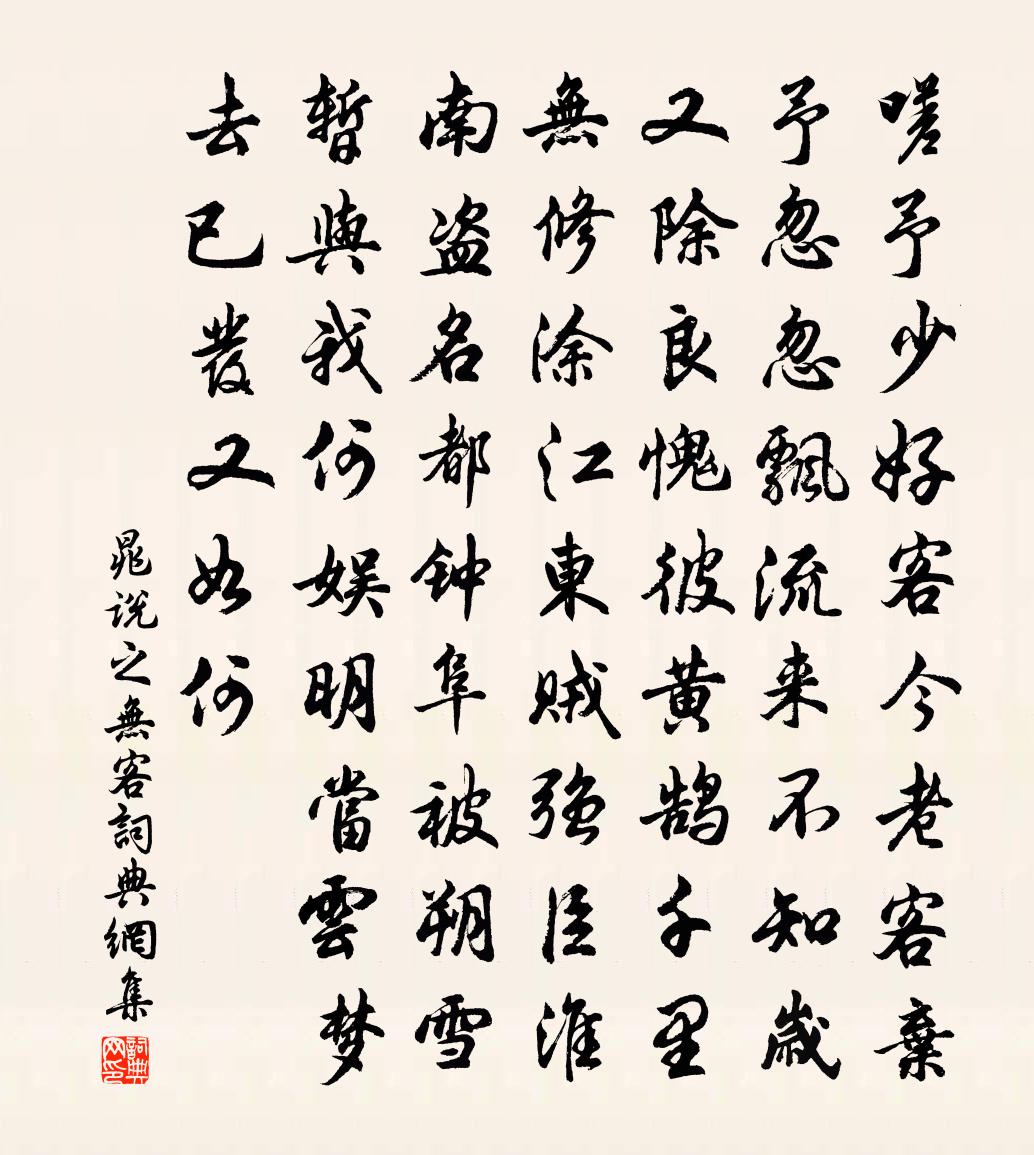 嗟予少好客今老客棄
予忽忽飄流来不知歲
又除良愧彼黃鹄千里
無修涂江東賊強臣淮
南盗名都钟阜被朔雪
暫與我何娱明當雲梦
去已發又如何
晁說之無客詞典網集
詞典网印